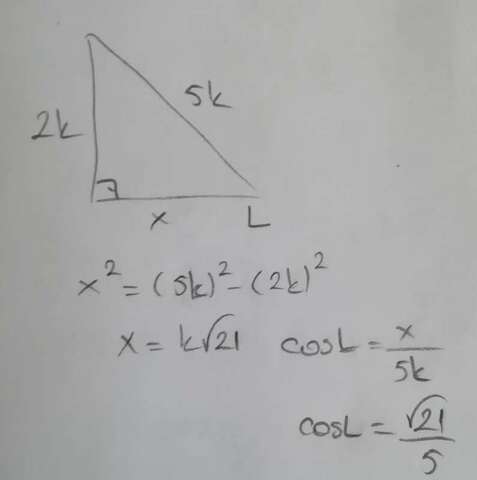 5k
2k
x L
x² = (5k)² - (2k)²
x = k√21 cosL = x/5k
cosL = √21/5